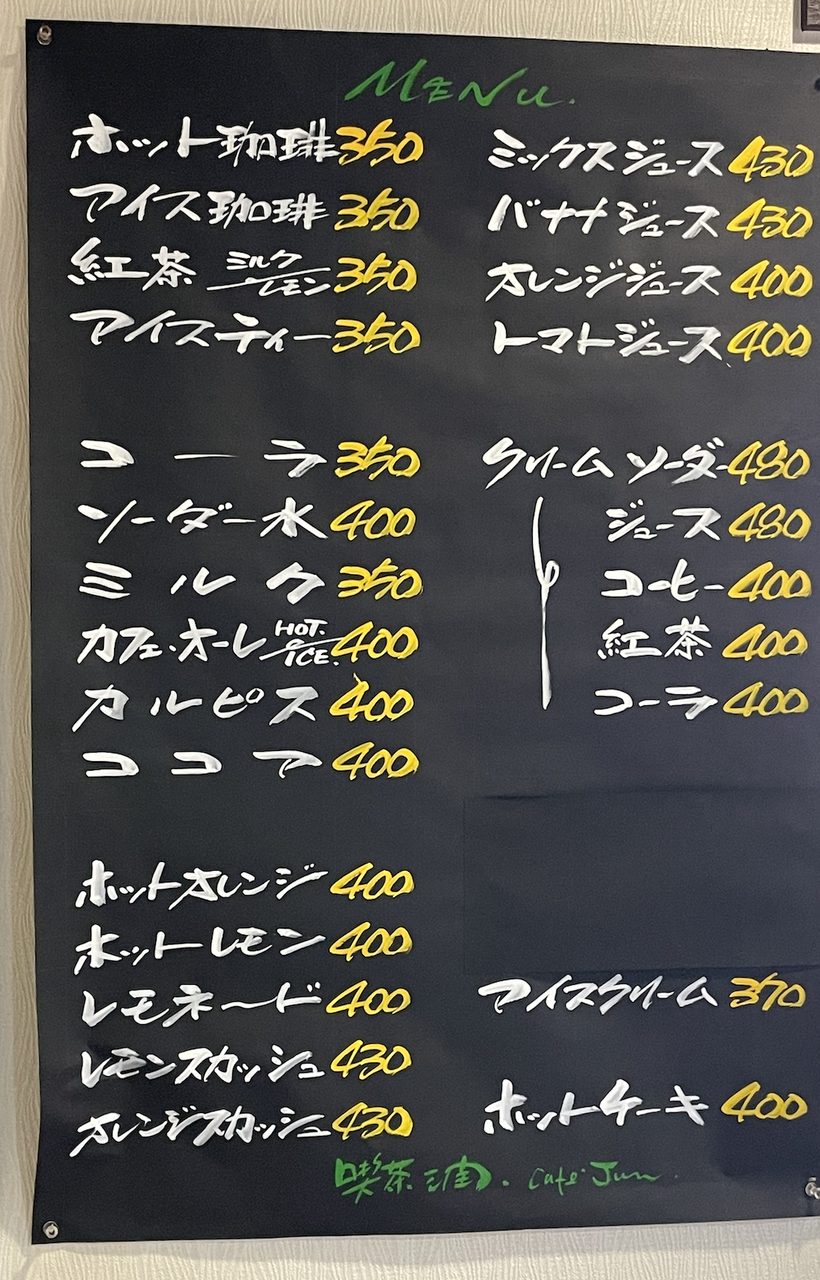 MENU.
ホット珈琲 350
アイス珈琲 350
紅茶 ミルク/レモン 350
アイスティー 350
コーラ 350
ソーダー水 400
ミルク 350
カフェ・オーレ HOT./ICE. 400
カルピス 400
ココア 400
ホットオレンジ 400
ホットレモン 400
レモネード 400
レモンスカッシュ 430
オレンジスカッシュ 430
ミックスジュース 430
バナナジュース 430
オレンジジュース 400
トマトジュース 400
クリームソーダー 480
ジュース 480
コーヒー 400
紅茶 400
コーラ 400
アイスクリーム 370
ホットケーキ 400
喫茶 . Café Jun